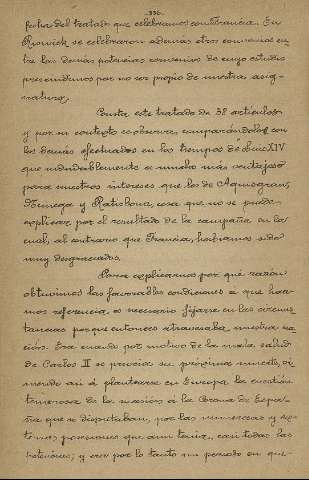 -336-
fecha del tratado que celebramos con Francia. En
Riswick se celebraron además otros convenios en-
tre las demás potencias convenios de cuyo estudio
prescindimos por no ser propio de nuestra asig-
natura.
Consta este tratado de 38 artículos
y por su contexto se observa comparándolos con
los demás efectuados en los tiempos de Luis XIV
que indudablemente es mucho más ventajoso
para nuestros intereses que los de Aquisgran,
Nimega y Ratisbona, cosa que no se puede
explicar por el resultado de la campaña en la
cual, al contrario que Francia, habíamos sido
muy desgraciados.
Para explicarnos por qué razón
obtuvimos las favorables condiciones á que hace-
mos referencia es necesario fijarse en las circuns-
tancias porque entonces atravesaba nuestra na-
ción. Era cuando por motivo de la mala salud
de Carlos II se preveía su próxima muerte, vi-
niendo así á plantearse en Europa la cuestión
temerosa de la sucesión á la Corona de Espa-
ña que se disputaban, por las numerosas y ex-
tensas posesiones que aun tenía, casi todas las
naciones; y era por lo tanto un periodo en que-